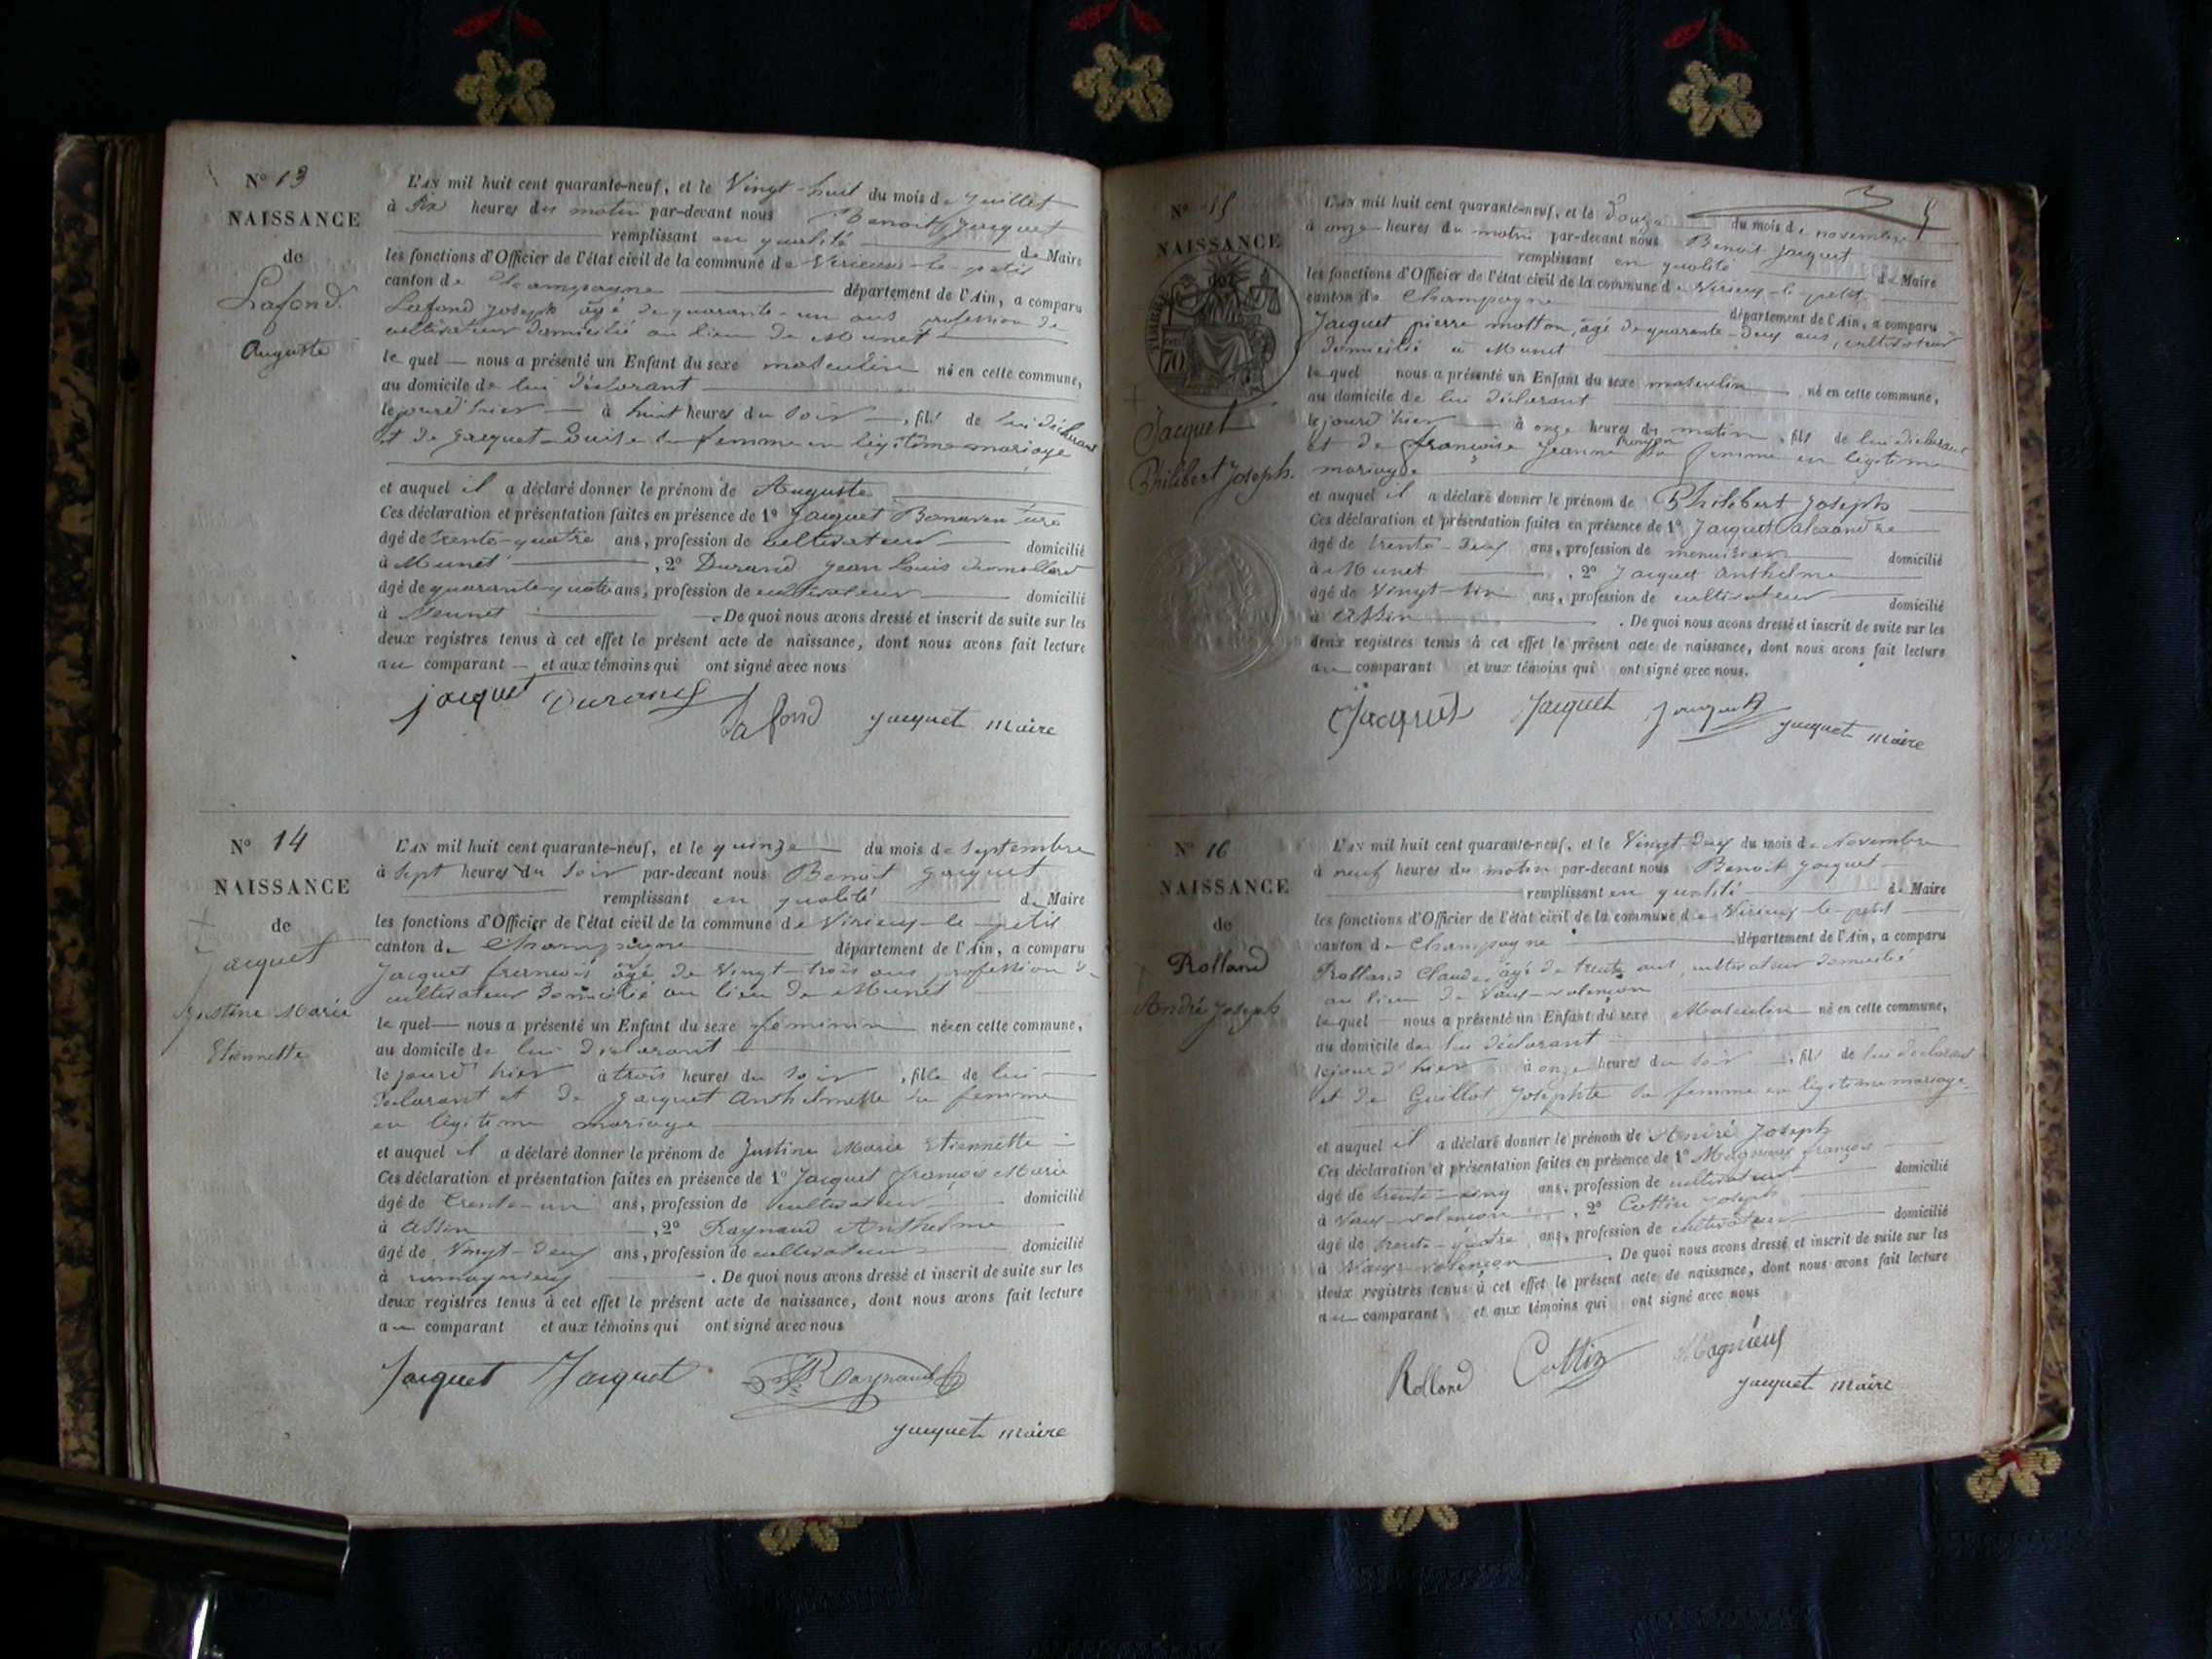 N° 13
NAISSANCE
de
Lafond
Auguste
L'AN mil huit cent quarante-neuf, et le Vingt-huit du mois de Juillet
à six heures du matin par-devant nous Benoit Jacquet
remplissant en qualité de Maire
les fonctions d'Officier de l'état civil de la commune de Virieux-le-petit
canton de Champagne département de l'Ain, a comparu
Lafond Joseph âgé de quarante-un ans profession de
cultivateur domicilié au lieu de Munet
le quel nous a présenté un Enfant du sexe masculin né en cette commune,
au domicile de lui déclarant
le jourd'hier à huit heures du soir, fils de lui déclarant
et de Jacquet Louise sa femme en légitime mariage
et auquel il a déclaré donner le prénom de Auguste
Ces déclaration et présentation faites en présence de 1° Jacquet Bonaventure
âgé de trente-quatre ans, profession de cultivateur domicilié
à Munet, 2° Durand Jean Louis
âgé de quarante-quatre ans, profession de cultivateur domicilié
à Munet. De quoi nous avons dressé et inscrit de suite sur les
deux registres tenus à cet effet le présent acte de naissance, dont nous avons fait lecture
au comparant et aux témoins qui ont signé avec nous
Jacquet Durand Lafond Jacquet maire
N° 14
NAISSANCE
de
Jacquet
Justine Marie
Etiennette
L'AN mil huit cent quarante-neuf, et le quinze du mois de Septembre
à sept heures du soir par-devant nous Benoit Jacquet
remplissant en qualité de Maire
les fonctions d'Officier de l'état civil de la commune de Virieux-le-petit
canton de Champagne département de l'Ain, a comparu
Jacquet francois âgé de Vingt-trois ans profession de
cultivateur domicilié au lieu de Munet
le quel nous a présenté un Enfant du sexe féminin née en cette commune,
au domicile de lui déclarant
le jourd'hier à trois heures du soir, fille de lui
déclarant et de Jacquet Anthelmette sa femme
en légitime mariage
et auquel il a déclaré donner le prénom de Justine Marie Etiennette
Ces déclaration et présentation faites en présence de 1° Jacquet François Marie
âgé de trente-un ans, profession de cultivateur domicilié
à Assin, 2° Raynaud Anthelme
âgé de Vingt-deux ans, profession de cultivateur domicilié
à rumagnieux. De quoi nous avons dressé et inscrit de suite sur les
deux registres tenus à cet effet le présent acte de naissance, dont nous avons fait lecture
au comparant et aux témoins qui ont signé avec nous
Jacquet Jacquet Raynaud
Jacquet maire
N° 15
NAISSANCE
de
TIMBRE
70
Jacquet
Philibert Joseph.
L'AN mil huit cent quarante-neuf, et le Douze du mois de novembre
à onze heures du matin par-devant nous Benoit Jacquet
remplissant en qualité de Maire
les fonctions d'Officier de l'état civil de la commune de Virieux-le-petit
canton de Champagne département de l'Ain, a comparu
Jacquet pierre motton, âgé de quarante-deux ans, cultivateur
domicilié à Munet
le quel nous a présenté un Enfant du sexe masculin né en cette commune,
au domicile de lui déclarant
le jourd'hier à onze heures du matin, fils de lui déclarant
et de francoise Jeanne sa femme en légitime
mariage
et auquel il a déclaré donner le prénom de Philibert Joseph
Ces déclaration et présentation faites en présence de 1° Jacquet alexandre
âgé de trente-deux ans, profession de menuisier domicilié
à Munet, 2° Jacquet anthelme
âgé de Vingt-six ans, profession de cultivateur domicilié
à Assin. De quoi nous avons dressé et inscrit de suite sur les
deux registres tenus à cet effet le présent acte de naissance, dont nous avons fait lecture
au comparant et aux témoins qui ont signé avec nous.
Jacquet Jacquet Jacquet A Jacquet maire
N° 16
NAISSANCE
de
Rolland
André Joseph
L'AN mil huit cent quarante-neuf, et le Vingt-deux du mois de Novembre
à neuf heures du matin par-devant nous Benoit Jacquet
remplissant en qualité de Maire
les fonctions d'Officier de l'état civil de la commune de Virieux-le-petit
canton de Champagne département de l'Ain, a comparu
Rolland Claude, âgé de trente ans, cultivateur domicilié
au lieu de Vaux-valençon
le quel nous a présenté un Enfant du sexe Masculin né en cette commune,
au domicile de lui déclarant
le jour d'hier à onze heures du soir, fils de lui déclarant
et de Guillot Josephte sa femme en légitime mariage
et auquel il a déclaré donner le prénom de André Joseph
Ces déclaration et présentation faites en présence de 1° Magnieux françois
âgé de trente-cinq ans, profession de cultivateur domicilié
à Vaux-valençon, 2° Cottin Joseph
âgé de trente-quatre ans, profession de cultivateur domicilié
à Vaux-valençon. De quoi nous avons dressé et inscrit de suite sur les
deux registres tenus à cet effet le présent acte de naissance, dont nous avons fait lecture
au comparant et aux témoins qui ont signé avec nous
Rolland Cottin Magnieux
Jacquet maire